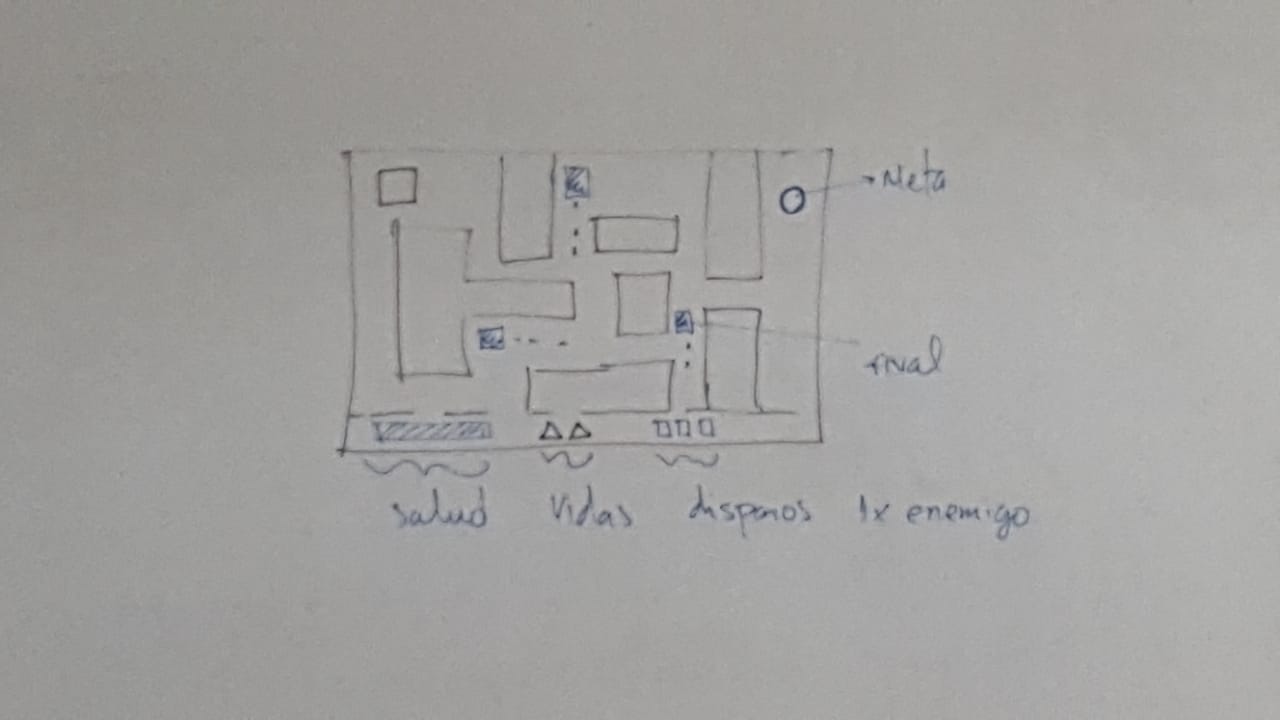 Meta
rival
salud vidas disparos 1x enemigo